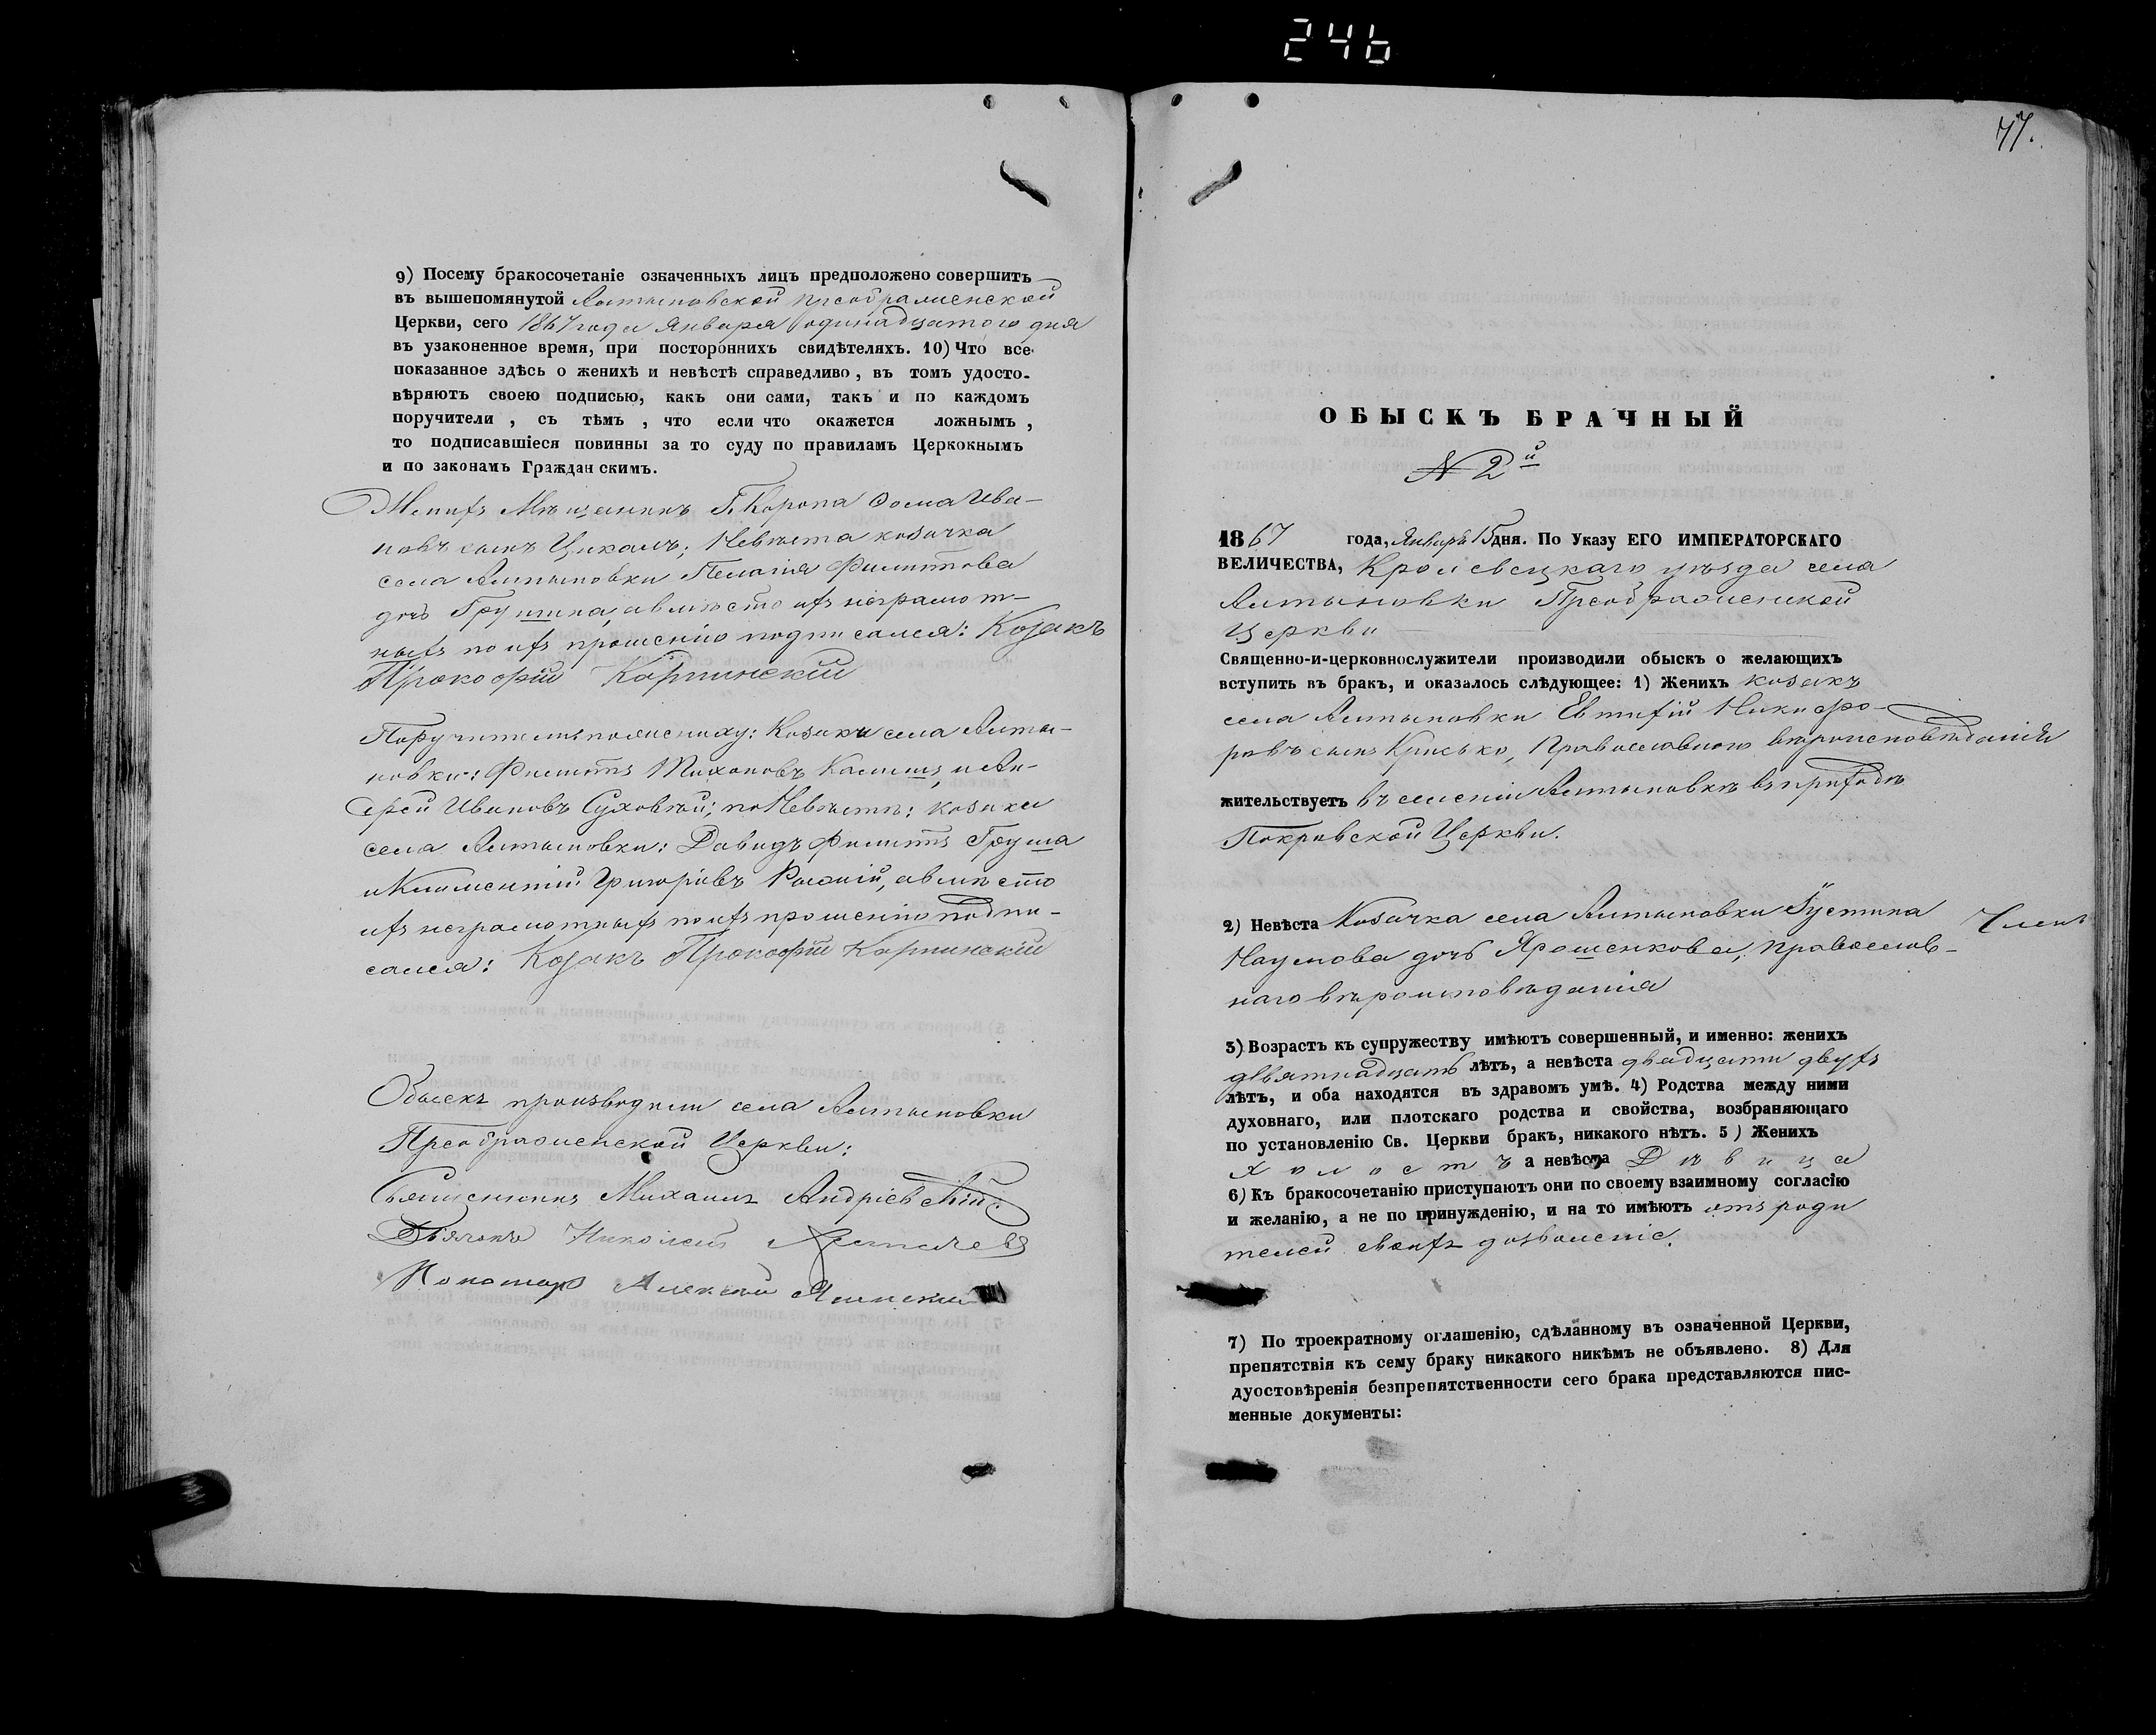 246
9) Посему бракосочетаніе означенныхъ лицъ предположено совершить
въ вышепомянутой Алтыновской Преображенской
Церкви, сего 1867 года Января одинадцатого дня
въ узаконенное время, при постороннихъ свидѣтеляхъ. 10) Что все
показанное здѣсь о женихѣ и невѣстѣ справедливо, въ томъ удосто-
вѣряютъ своею подписью, какъ они сами, такъ и по каждомъ
поручители, съ тѣмъ, что если что окажется ложнымъ,
то подписавшіеся повинны за то суду по правиламъ Церкокнымъ
и по законамъ Граждан скимъ.
Женихъ Мѣщанинъ Г. Коропа Фома Ива-
новъ сынъ Цикалъ; Невѣста козачка
села Алтыновки Пелагія Филиппова
дочь Грушина, а вмѣсто ихъ неграмот-
ныхъ по ихъ прошенію подписался: Козакъ
Прокофій Карпинскій
Поручители по женику: Козаки села Алты-
новки: Филиппъ Тихоновъ и Ан-
дрей Ивановъ Суховѣй; по Невѣстѣ: козаки
села Алтыновки: Давидъ Филиппъ Груша
и Климентій Григорівъ а вмѣсто
ихъ неграмотныхъ по ихъ прошенію подпи-
сался: Козакъ Прокофій Карпинскій
Обыскъ производили села Алтыновки
Преображенской Церкви:
Священникъ Михаилъ Андріевскій
Дьячокъ Николай
Пономарь Алексѣй
77.
ОБЫСКЪ БРАЧНЫЙ
№ 2й
1867 года, Январь 15 дня. По Указу ЕГО ИМПЕРАТОРСКАГО
ВЕЛИЧЕСТВА, Кролевецкаго уѣзда села
Алтыновки Преображенской
Церкви
Священно-и-церковнослужители производили обыскъ о желающихъ
вступить въ бракъ, и оказалось слѣдующее: 1) Женихъ козакъ
села Алтыновки Евтихій Никифо-
ровъ сынъ Крисько, Православного вѣроисповѣданія
жительствуетъ въ селеніи Алтыновкѣ въ приходѣ
Покровской Церкви.
2) Невѣста Козачка села Алтыновки Іустина
Наумова дочь Ярошенкова, православ-
наго вѣроисповѣданія
3) Возрастъ къ супружеству имѣютъ совершенный, и именно: женихъ
девятнадцать лѣтъ, а невѣста двадцати двухъ
лѣтъ, и оба находятся въ здравомъ умѣ. 4) Родства между ними
духовнаго, или плотскаго родства и свойства, возбраняющаго
по установленію Св. Церкви бракъ, никакого нѣтъ. 5) Женихъ
Холостъ а невѣста Дѣвица
6) Къ бракосочетанію приступаютъ они по своему взаимному согласію
и желанію, а не по принужденію, и на то имѣютъ отъ роди
телей своихъ дозволеніе.
7) По троекратному оглашенію, сдѣланному въ означенной Церкви,
препятствія къ сему браку никакого никѣмъ не объявлено. 8) Для
дуостовѣренія безпрепятственности сего брака представляются пис-
менные документы: